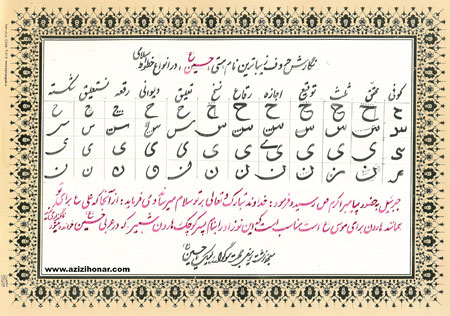 نگارش حروف زیباترین نام هستی، حسین ع، در انواع خطوط اسلامی
کوفی محقق ثلث توقیع اجازه رقاع نسخ تعلیق دیوانی رقعه نستعلیق شکسته
ح ح ح ح ح ح ح ح ح ح ح ح
س س س س س س س س س س س س
ی ی ی ی ی ی ی ی ی ی ی ی
ن ن ن ن ن ن ن ن ن ن ن ن
جبرئیل بحضور پیامبر اکرم ص رسید و فرمود: خداوند تبارک و تعالی بر تو سلام میرساند و می فرماید: از آنجا که علی ع برای تو
همانند هارون برای موسی ع است مناسب است که این نوزاد را بنام پسر کوچک هارون شبیر که در عربی حسین
www.azizihonar.com